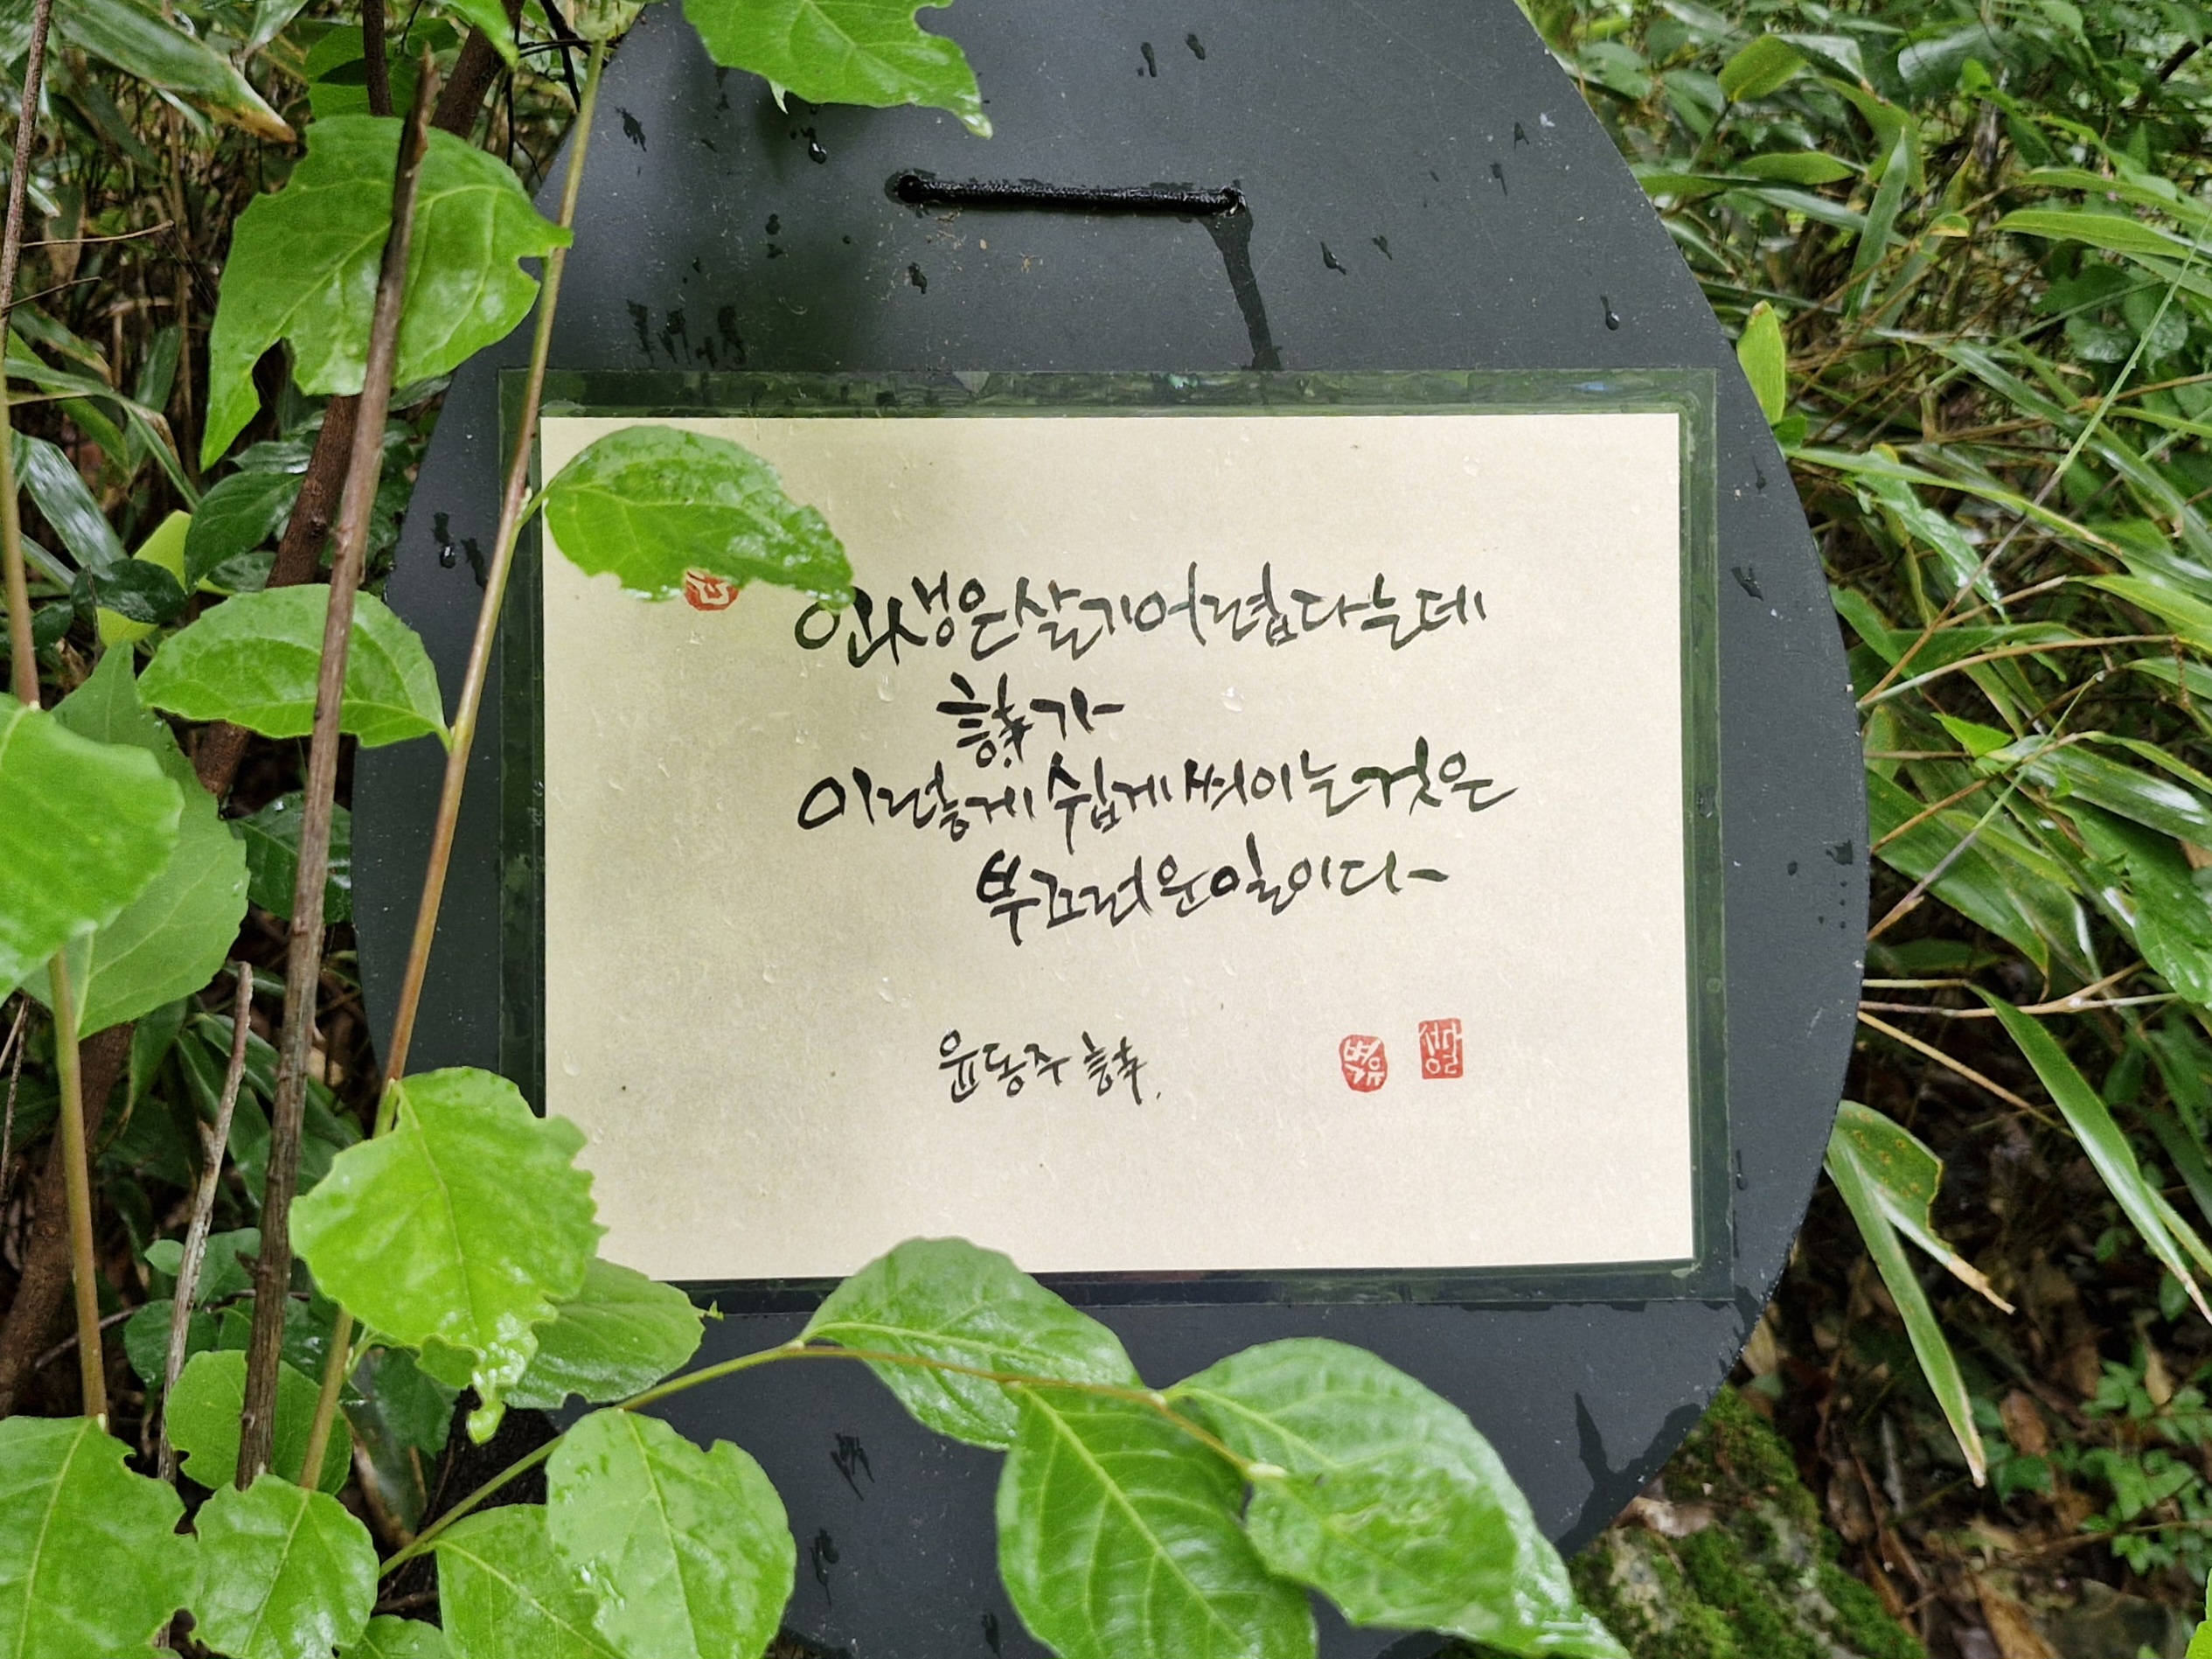 인생은 살기 어렵다는데
詩가
이렇게 쉽게 씌이는 것은
부끄러운 일이다
윤동주 詩.